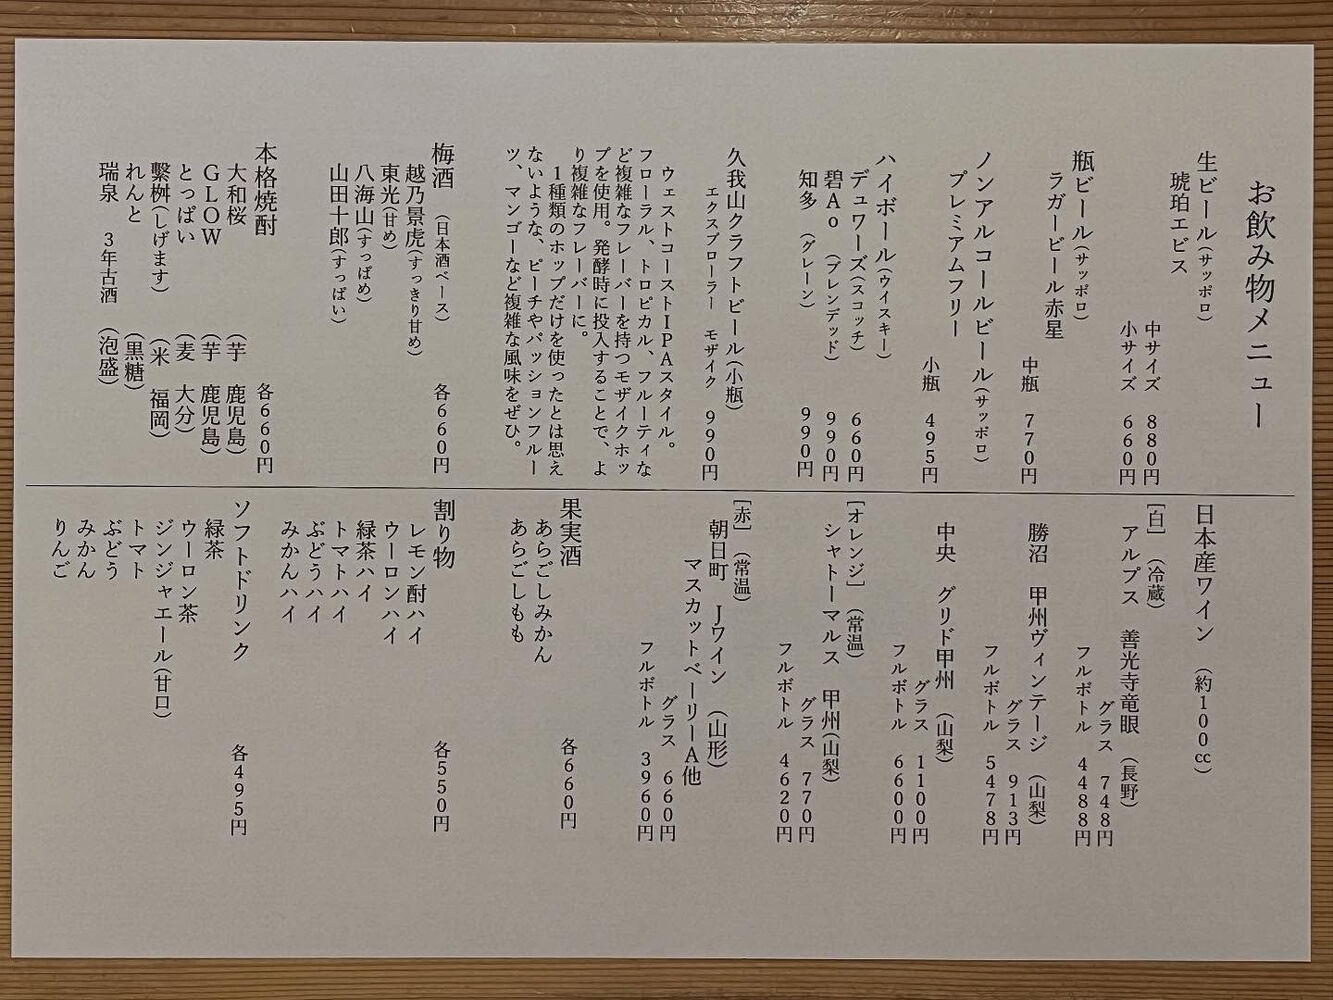 お飲み物メニュー
生ビール(サッポロ)
琥珀ヱビス
中サイズ 880円
小サイズ 660円
瓶ビール(サッポロ)
ラガービール赤星
中瓶 770円
ノンアルコールビール(サッポロ)
プレミアムフリー
小瓶 495円
ハイボール(ウイスキー)
デュワーズ(スコッチ) 660円
碧Ao (ブレンデッド) 990円
知多 (グレーン) 990円
久我山クラフトビール(小瓶)
エクスプローラー モザイク 990円
ウェストコーストIPAスタイル。
フローラル、トロピカル、フルーティな
ど複雑なフレーバーを持つモザイクホッ
プを使用。発酵時に投入することで、よ
り複雑なフレーバーに。
1種類のホップだけを使ったとは思え
ないような、ピーチやパッションフルー
ツ、マンゴーなど複雑な風味をぜひ。
梅酒 (日本酒ベース) 各660円
越乃景虎(すっきり甘め)
東光(甘め)
八海山(すっぱめ)
山田十郎(すっぱい)
本格焼酎 各660円
大和桜 (芋 鹿児島)
GLOW (芋 鹿児島)
とっぱい (麦 大分)
繫桝(しげます) (米 福岡)
れんと (黒糖)
瑞泉 3年古酒 (泡盛)
日本産ワイン (約100cc)
[白] (冷蔵)
アルプス 善光寺竜眼 (長野)
グラス 748円
フルボトル 4488円
勝沼 甲州ヴィンテージ (山梨)
グラス 913円
フルボトル 5478円
中央 グリド甲州 (山梨)
グラス 1100円
フルボトル 6600円
[オレンジ] (常温)
シャトーマルス 甲州(山梨)
グラス 770円
フルボトル 4620円
[赤] (常温)
朝日町 Jワイン (山形)
マスカットベーリーA他
グラス 660円
フルボトル 3960円
果実酒 各660円
あらごしみかん
あらごしもも
割り物 各550円
レモン酎ハイ
ウーロンハイ
緑茶ハイ
トマトハイ
ぶどうハイ
みかんハイ
ソフトドリンク 各495円
緑茶
ウーロン茶
ジンジャエール(甘口)
トマト
ぶどう
みかん
りんご